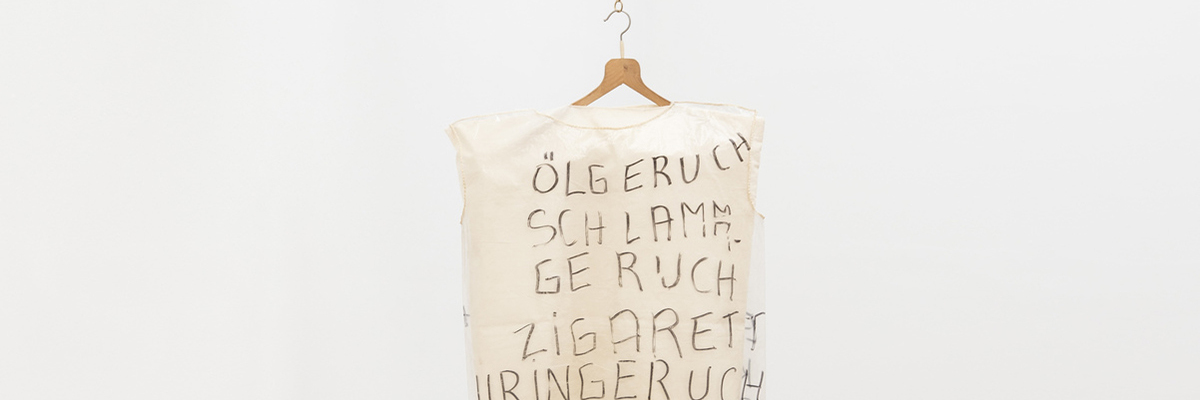 ÖLGERUCH
SCHLAMM
GERUCH
ZIGARET
URINGERUCH